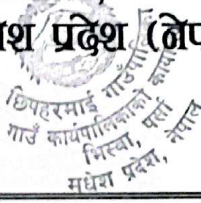 श प्रदेश (नेप
छिपहरमाई गाउँपालि
गाउँ कार्यपालिकाको कार्या
भिस्वा, पर्सा
मधेश प्रदेश, नेपाल